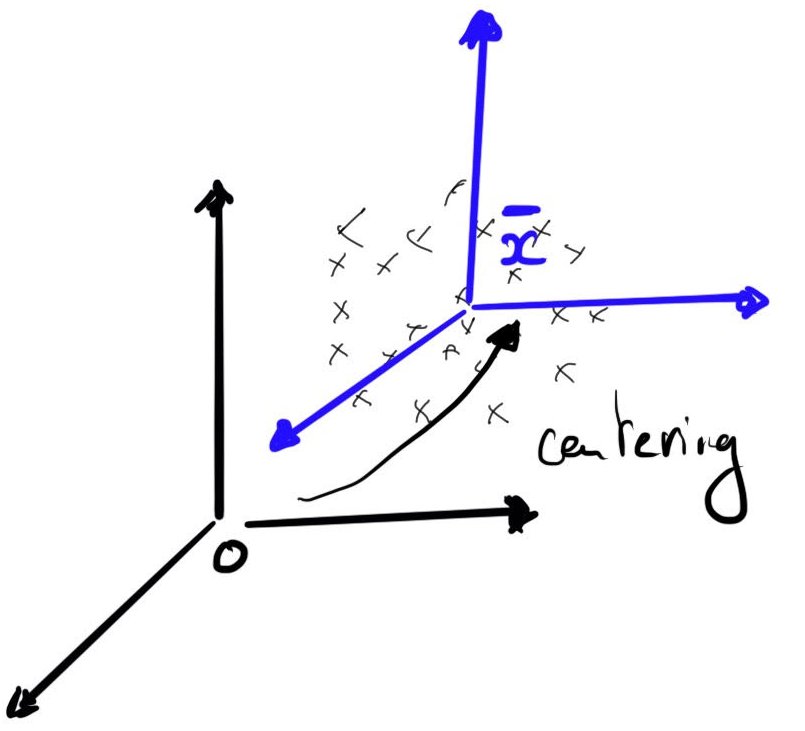 x̄
centering
O